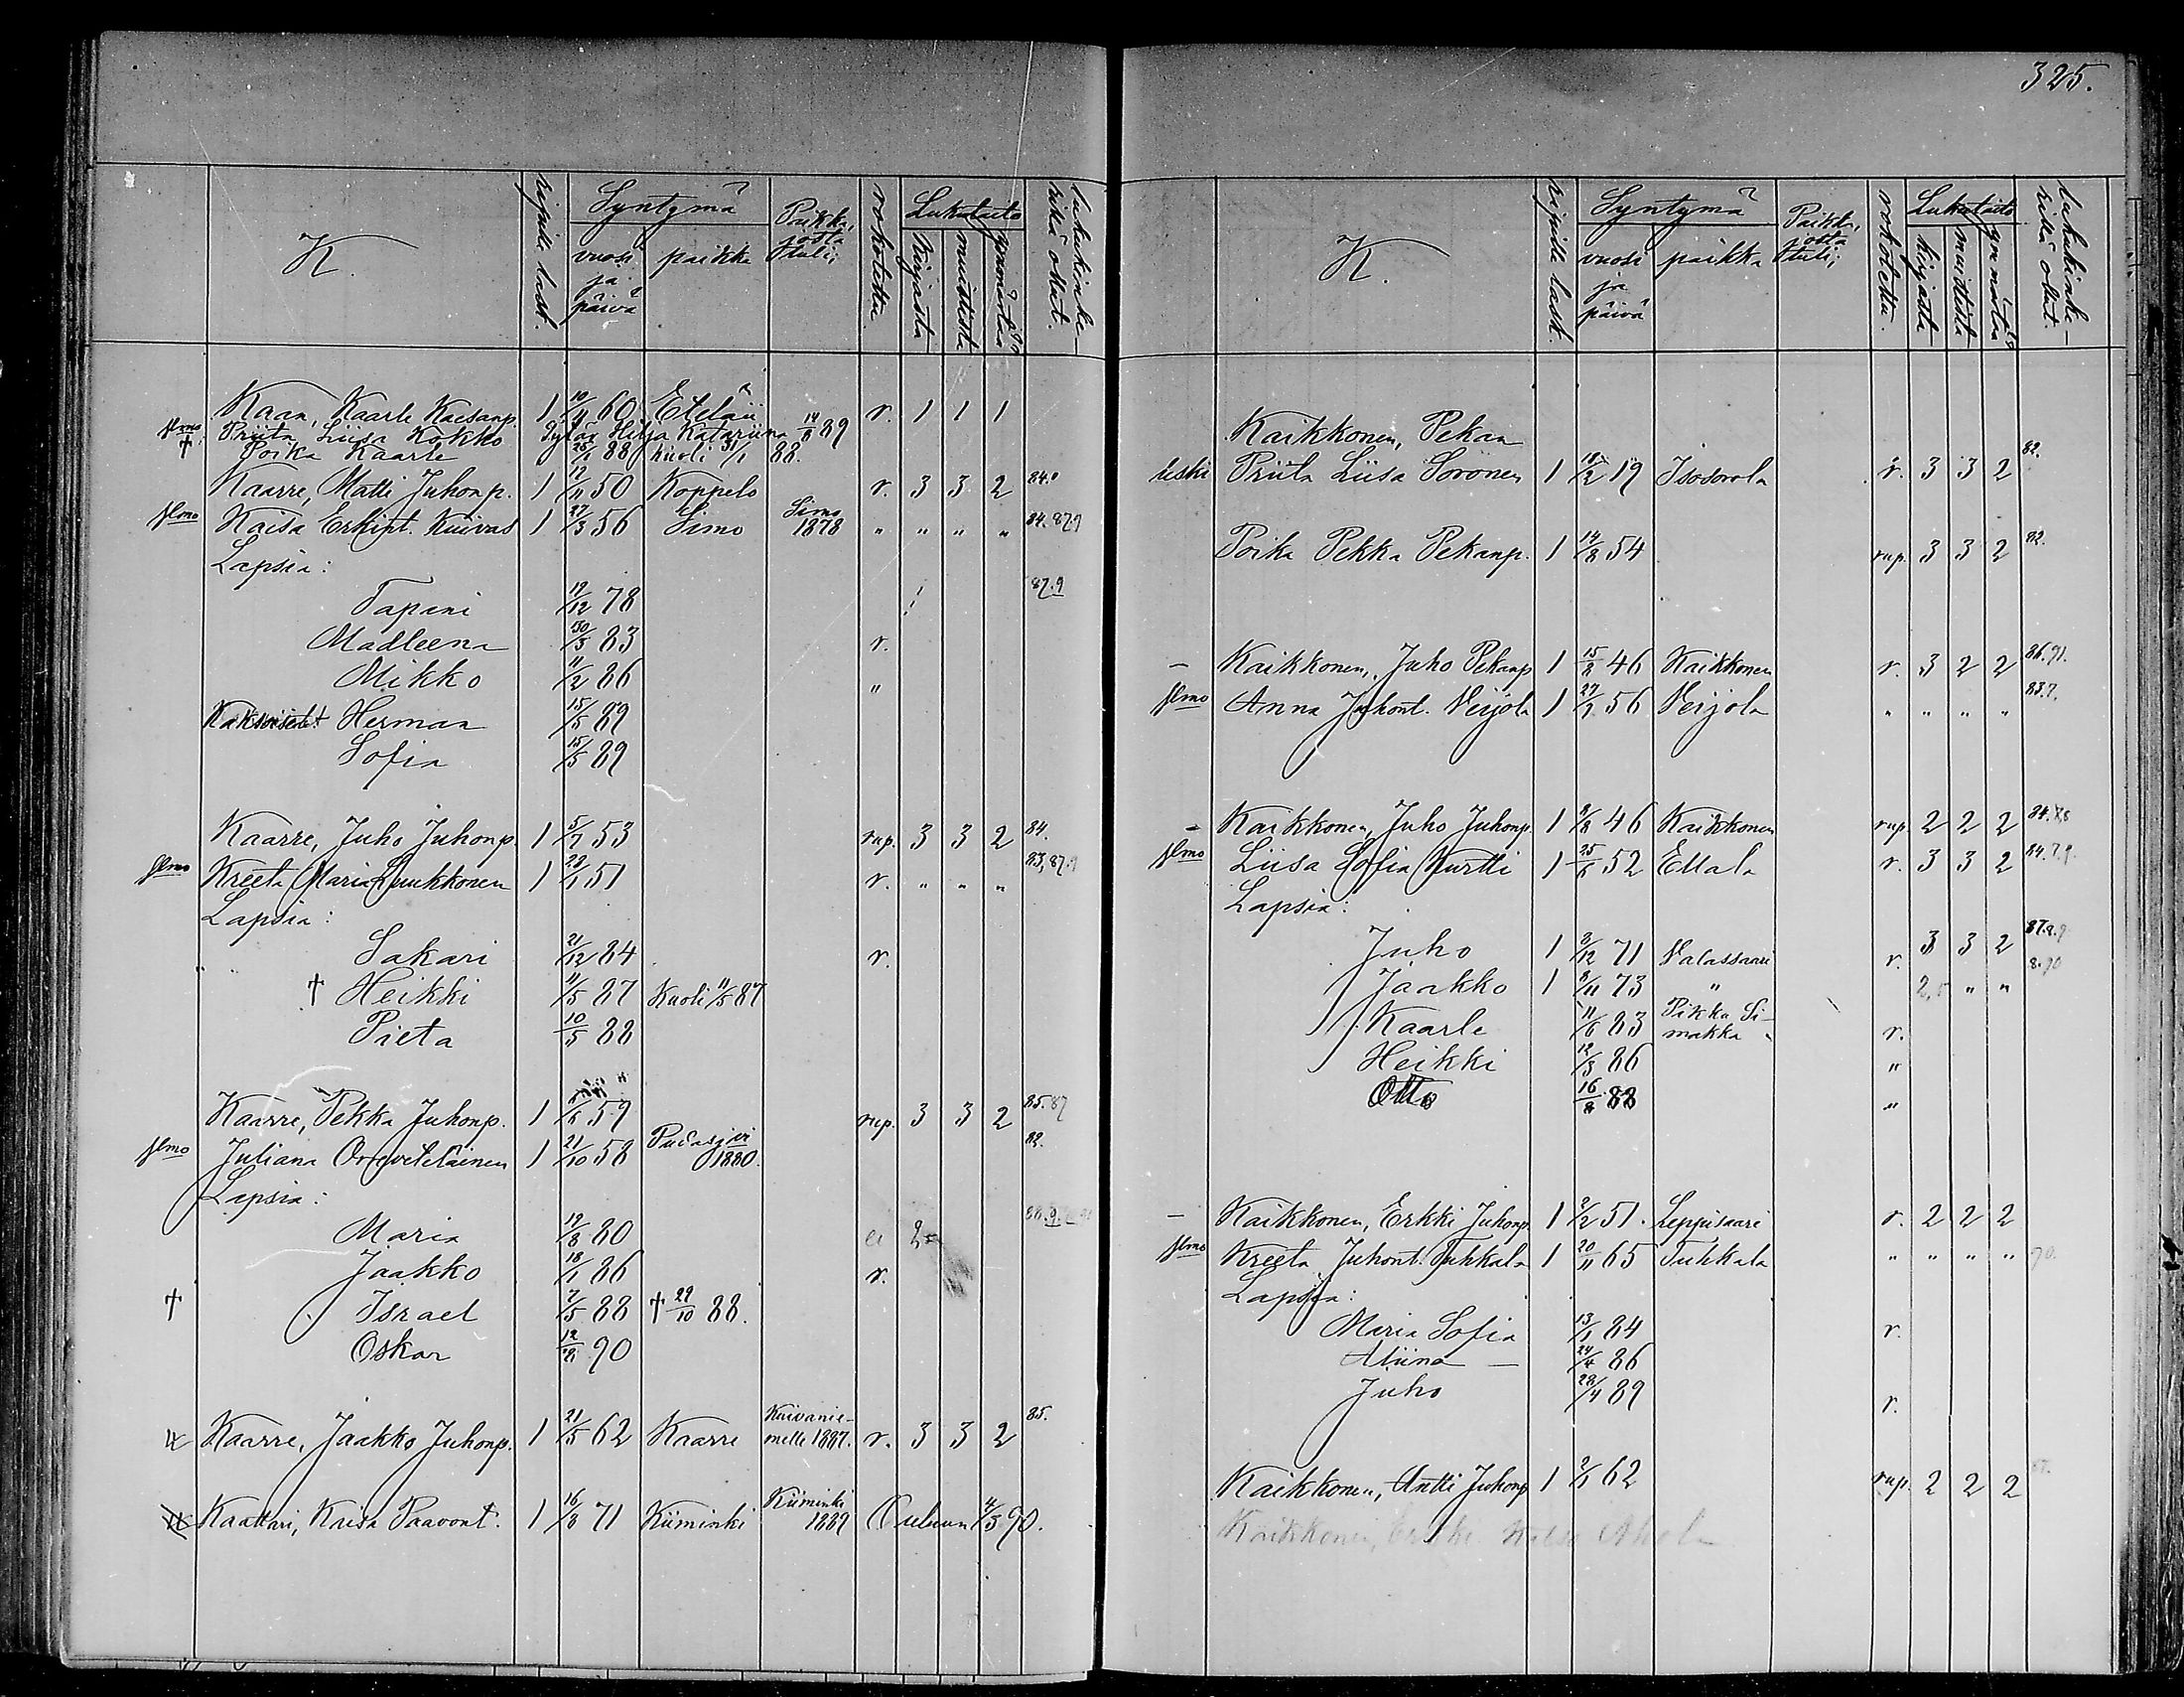 325.
K. ripille lask. Syntymä vuosi ja päivä paikka Paikka, josta tuli; rokotettu Lukutaito kirjasta muistista ymmärtää lukukinkerillä ollut.
Kaan, Kaarle Kaesanp. 1 10/4 60 Eteläii r. 1 1 1
vmo Priita Liisa Kokko Tytär Hilja Katariina 14/8 89
† Poika Kaarle 25/1 88 kuoli 31/1 88.
Kaarre, Matti Juhonp. 1 12/11 50 Koppelo r. 3 3 2 84.
vmo Kaisa Erkint. Kuivas 1 27/3 56 Simo Simo 1878 " " " " 84. 87.9
Lapsia:
Tapani 19/12 78 87.9
Madleena 30/3 83 r.
Mikko 11/2 86 "
Kaksoiset Herman 15/5 89
Sofia 15/5 89
Kaarre, Juho Juhonp. 1 5/7 53 rup. 3 3 2 84.
vmo Kreeta Maria Luukkonen 1 28/1 51 r. " " " 83, 87.9
Lapsia:
Sakari 21/12 84 r.
† Heikki 11/5 87 Kuoli 11/5 87
Pieta 10/5 88
Kaarre, Pekka Juhonp. 1 6/6 59 rup. 3 3 2 85. 87
vmo Juliana Oravitelainen 1 21/10 58 Pudasjvi 1880. 82.
Lapsia:
Maria 19/8 80 ei 2 88.9.
Jaakko 18/1 86 r.
† Israel 7/5 88 † 29/10 88.
Oskar 12/8 90
Kaarre, Jaakko Juhonp. 1 21/5 62 Kaarre Kuivaniemelle 1887. r. 3 3 2 85.
Kaattari, Kaisa Paavont. 1 16/8 71 Kiiminki Kiiminki 1889 Ouluun 4/5 90.
K. ripille lask. Syntymä vuosi ja päivä paikka Paikka, josta tuli; rokotettu. Lukutaito kirjasta muistista ymmärtää lukukinkerillä ollut.
Kaikkonen, Pekan
leski Priita Liisa Soronen 1 18/2 19 Isosorola r. 3 3 2 82.
Poika Pekka Pekanp. 1 14/8 54 rup. 3 3 2 82.
– Kaikkonen, Juho Pekanp 1 15/8 46 Kaikkonen r. 3 2 2 86. 91.
vmo Anna Juhont. Veijola 1 27/7 56 Veijola " " " " 83.7.
– Kaikkonen, Juho Juhonp. 1 8/8 46 Kaikkonen rup. 2 2 2 84. 88
vmo Liisa Sofia Kurtti 1 25/6 52 Ellala r. 3 3 2 84.7.9.
Lapsia:
Juho 1 8/12 71 Valassaari r. 3 3 2 87.8.9
Jaakko 1 8/11 73 " 2 " " 8.90
Kaarle 11/6 83 Pikku Simakka r.
Heikki 12/3 86 "
Otto 16/8 88 "
– Kaikkonen, Erkki Juhonp. 1 2/2 51. Leppisaari r. 2 2 2
vmo Kreeta Juhont. Tuhkala 1 20/11 65 Tuhkala " " " " 90.
Lapsia:
Maria Sofia 13/1 84 r.
Aliina – 24/4 86
Juho 28/4 89 r.
Kaikkonen, Antti Juhonp 1 2/1 62 rup. 2 2 2
Kaikkonen,